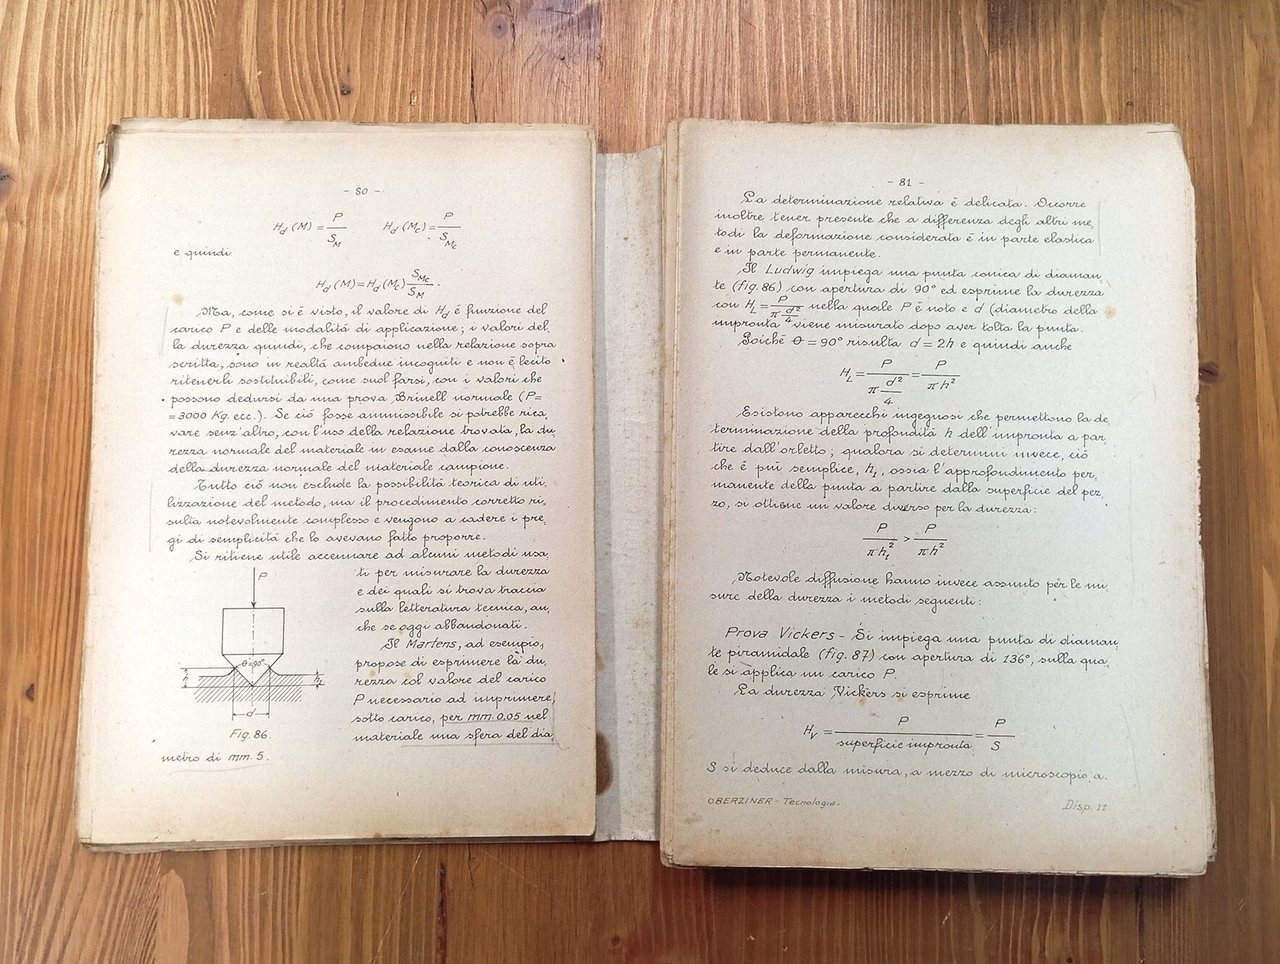 - 80 -
H_d (M) = P/S_M    H_d (M_c) = P/S_Mc
e quindi
H_d (M) = H_d (M_c) S_Mc/S_M.
Ma, come si è visto, il valore di H_d è funzione del
carico P e delle modalità di applicazione; i valori del,
la durezza quindi, che compaiono nella relazione sopra
scritta, sono in realtà ambedue incogniti e non è lecito
ritenerli sostituibili, come suol farsi, con i valori che
possono dedursi da una prova Brinell normale (P=
=3000 Kg. ecc.). Se ciò fosse ammissibile si potrebbe rica,
vare senz'altro, con l'uso della relazione trovata, la du,
rezza normale del materiale in esame dalla conoscenza
della durezza normale del materiale campione.
Tutto ciò non esclude la possibilità teorica di uti,
lizzazione del metodo, ma il procedimento corretto ri,
sulta notevolmente complesso e vengono a cadere i pre,
gi di semplicità che lo avevano fatto proporre.
Si ritiene utile accennare ad alcuni metodi usa,
ti per misurare la durezza
e dei quali si trova traccia
sulla letteratura tecnica, an,
che se oggi abbandonati.
Il Martens, ad esempio,
propose di esprimere la du,
rezza col valore del carico
P necessario ad imprimere,
sotto carico, per mm. 0,05 nel
materiale una sfera del dia,
metro di mm. 5.
P
θ=90°
h
h₁
d
Fig. 86.
- 81 -
La determinazione relativa è delicata. Occorre
inoltre tener presente che a differenza degli altri me,
todi la deformazione considerata è in parte elastica
e in parte permanente.
Il Ludwig impiega una punta conica di diaman,
te (fig. 86) con apertura di 90° ed esprime la durezza
con H_L = P/(π d²/4) nella quale P è noto e d (diametro della
impronta) viene misurato dopo aver tolta la punta.
Poichè θ = 90° risulta d = 2h e quindi anche
H_L = P/(π d²/4) = P/(π h²)
Esistono apparecchi ingegnosi che permettono la de,
terminazione della profondità h dell'impronta a par,
tire dall'orletto; qualora si determini invece, ciò
che è più semplice, h₁, ossia l'approfondimento per,
manente della punta a partire dalla superficie del pez,
zo, si ottiene un valore diverso per la durezza:
P/(π h₁²) > P/(π h²)
Notevole diffusione hanno invece assunto per le mi,
sure della durezza i metodi seguenti:
Prova Vickers - Si impiega una punta di diaman,
te piramidale (fig. 87) con apertura di 136°, sulla qua,
le si applica un carico P.
La durezza Vickers si esprime
H_V = P/superficie impronta = P/S
S si deduce dalla misura, a mezzo di microscopio a.
OBERZINER - Tecnologia.    Disp. 11